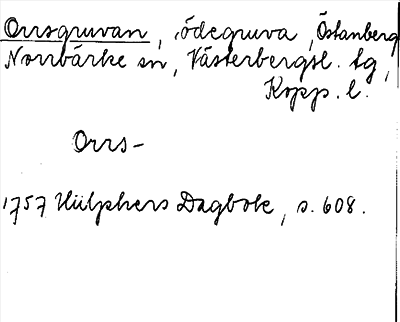 Orrsgruvan, ödegruva, Östanberg
Norrbärke sn, Västerbergsl. tg,
Kopp. l.
Orrs-
1757 Hülphers Dagbok, s. 608.